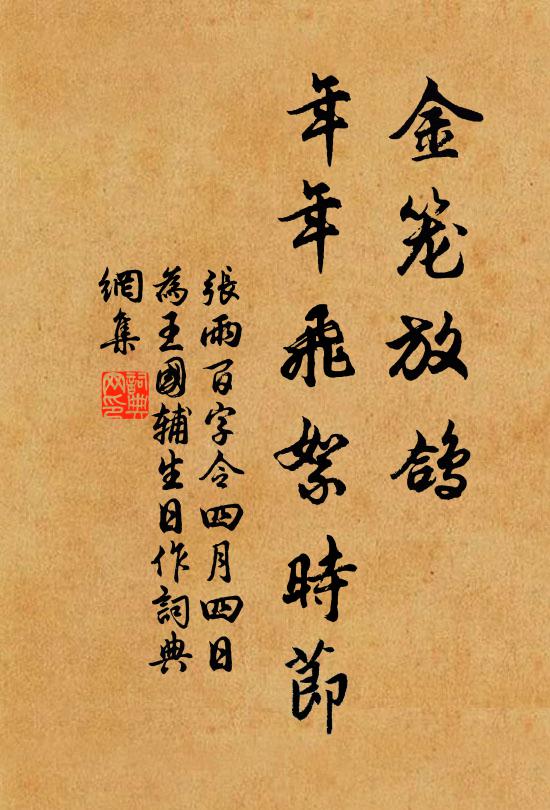 金笼放鴿
年年飛絮時節
張雨百字令四月四日
為王國辅生日作詞典
網集
詞典
网印